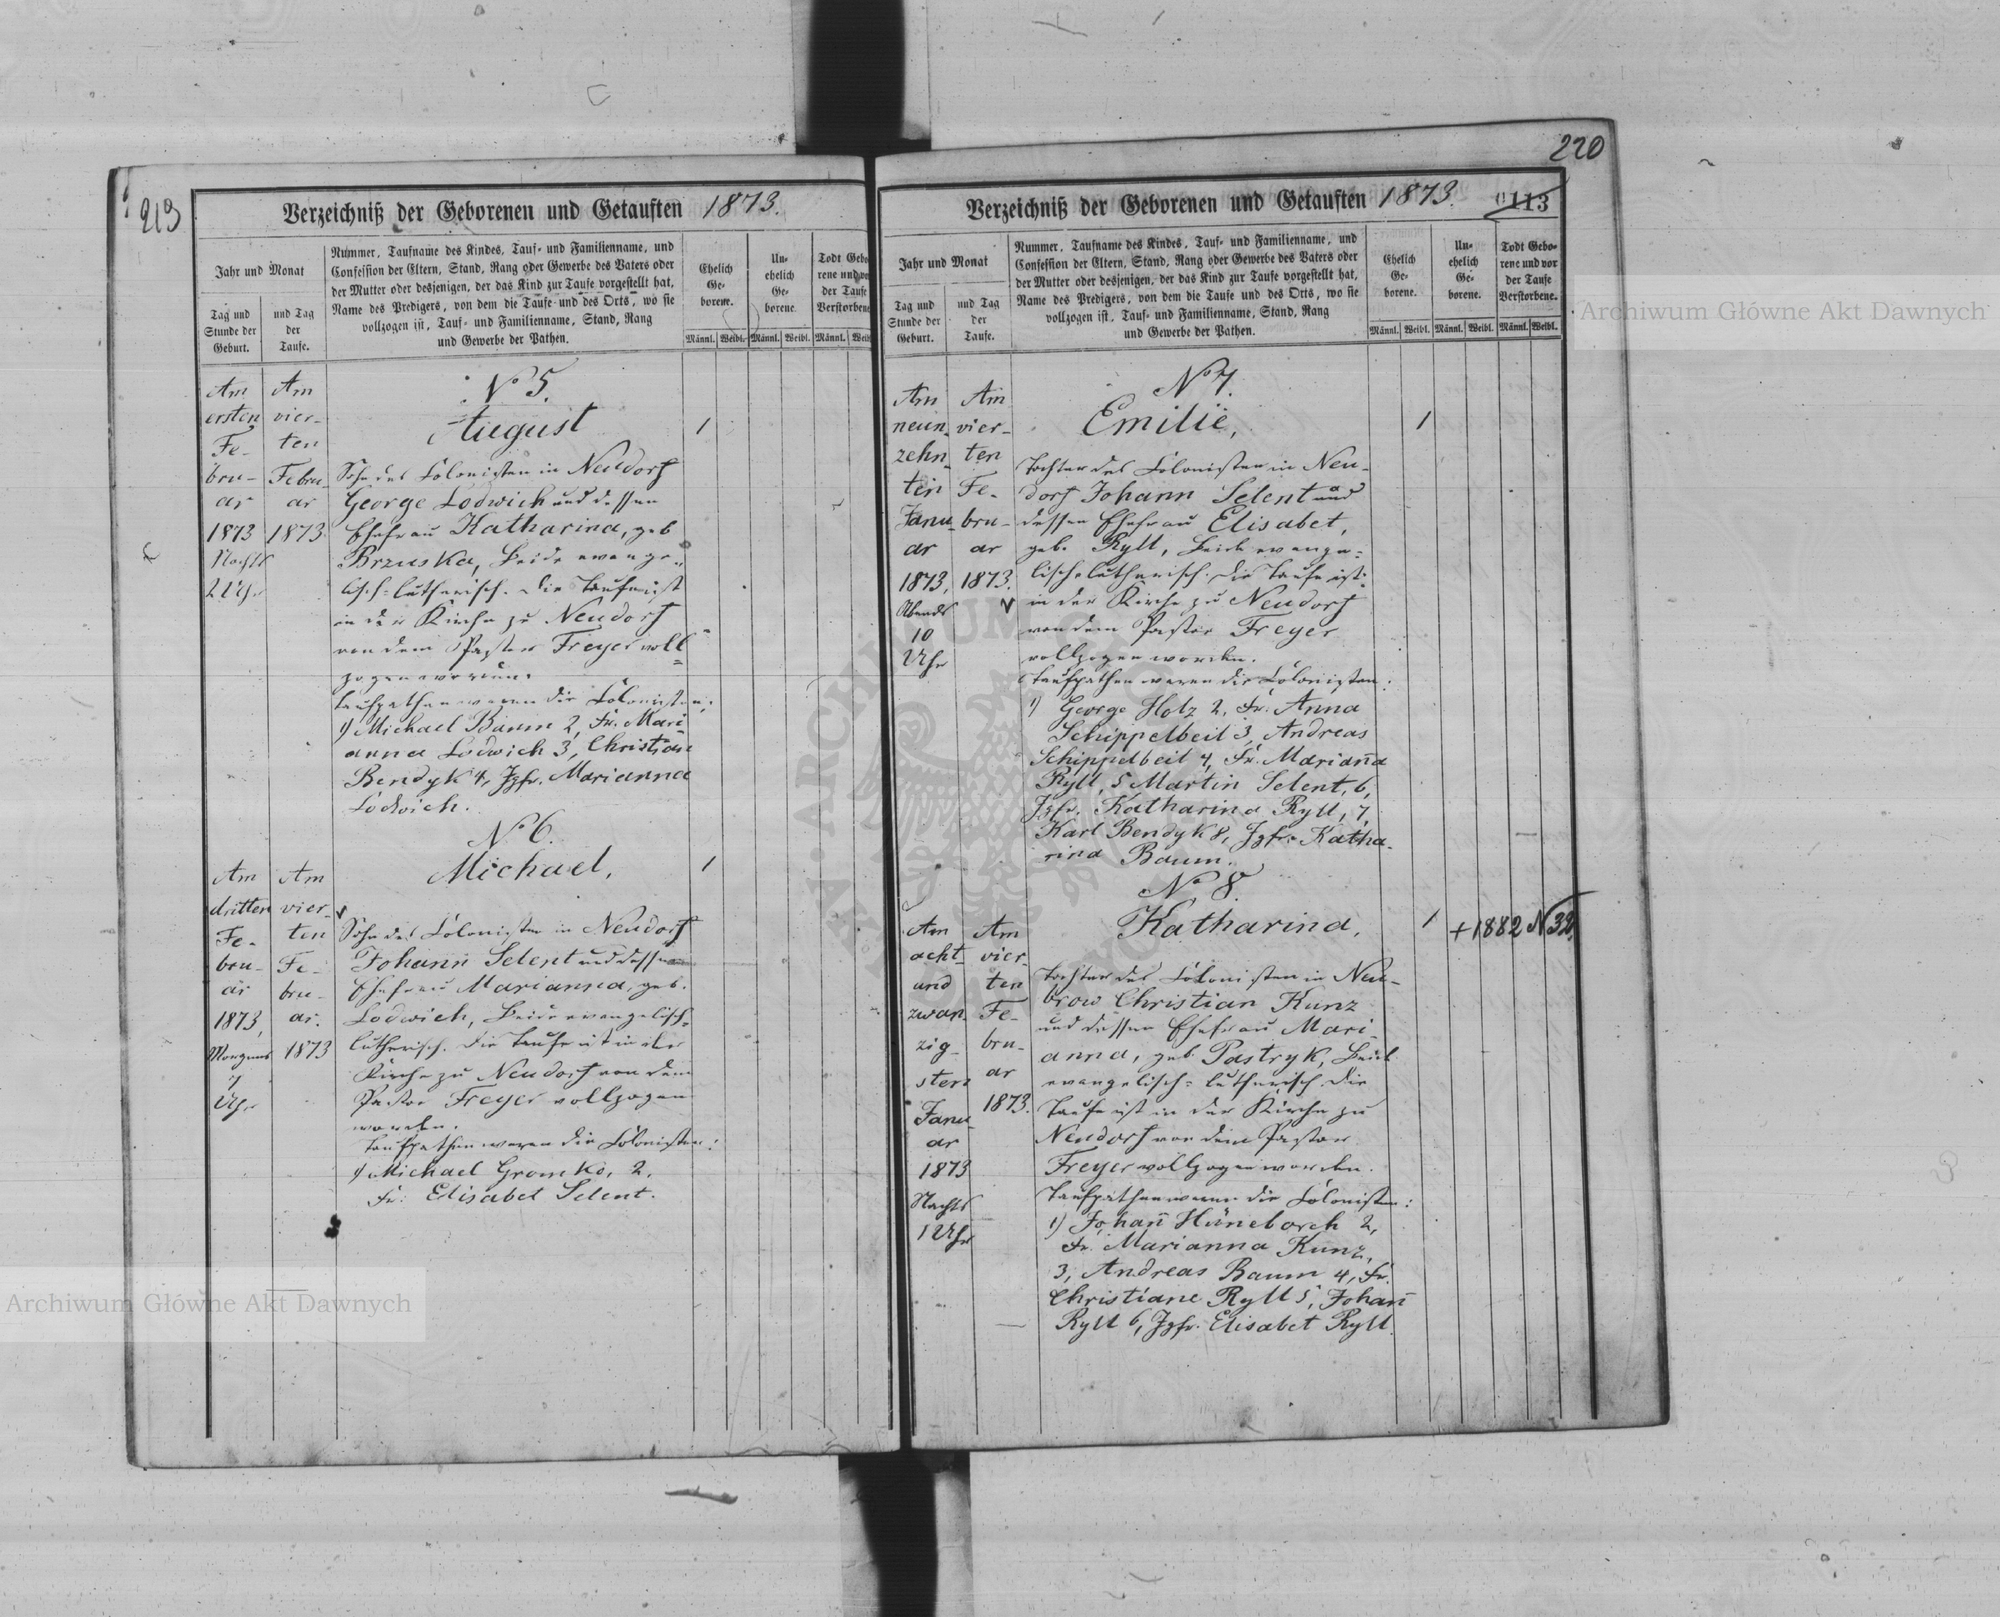 219
Verzeichniß der Geborenen und Getauften 1873.
Jahr und Monat
Tag und Stunde der Geburt.
und Tag der Taufe.
Nummer, Taufname des Kindes, Tauf- und Familienname, und
Confession der Eltern, Stand, Rang oder Gewerbe des Vaters oder
der Mutter oder desjenigen, der das Kind zur Taufe vorgestellt hat,
Name des Predigers, von dem die Taufe und des Orts, wo sie
vollzogen ist, Tauf- und Familienname, Stand, Rang
und Gewerbe der Pathen.
Ehelich Ge- borene.
Un- ehelich Ge- borene.
Todt Gebo- rene und vor der Taufe Verstorbene
Männl. Weibl. Männl. Weibl. Männl. Weibl.
Am
ersten
Fe-
bru-
ar
1873
Nachts
2 Uhr
Am
vier-
ten
Febru-
ar
1873.
No 5.
August
1
Sohn des Colonisten in Neudorf
George Lodwich und dessen
Ehefrau Katharina, geb
Brzuska, Beide evange-
lisch-lutherisch. Die Taufe ist
in der Kirche zu Neudorf
von dem Pastor Freyer voll-
zogen worden.
Taufpathen waren die Colonisten:
1) Michael Baum 2, Fr. Mari-
anna Lodwich 3, Christian
Bendyk 4, Jgfr. Marianna
Lodwich.
No 6.
Michael,
1
Am
dritten
Fe-
bru-
ar
1873,
Morgens
7
Uhr
Am
vier-
ten
Fe-
bru-
ar.
1873
Sohn des Colonisten in Neudorf
Johann Selent und dessen
Ehefrau Marianna, geb.
Lodwich, Beide evangelisch-
lutherisch. Die Taufe ist in der
Kirche zu Neudorf von dem
Pastor Freyer vollzogen
worden.
Taufpathen waren die Colonisten:
1) Michael Gromko, 2,
Fr. Elisabet Selent.
220
Verzeichniß der Geborenen und Getauften 1873.
113
Jahr und Monat
Tag und Stunde der Geburt.
und Tag der Taufe.
Nummer, Taufname des Kindes, Tauf- und Familienname, und
Confession der Eltern, Stand, Rang oder Gewerbe des Vaters oder
der Mutter oder desjenigen, der das Kind zur Taufe vorgestellt hat,
Name des Predigers, von dem die Taufe und des Orts, wo sie
vollzogen ist, Tauf- und Familienname, Stand, Rang
und Gewerbe der Pathen.
Ehelich Ge- borene.
Un- ehelich Ge- borene.
Todt Gebo- rene und vor der Taufe Verstorbene.
Männl. Weibl. Männl. Weibl. Männl. Weibl.
Am
neun-
zehn-
ten
Janu-
ar
1873,
Abends
10
Uhr
Am
vier-
ten
Fe-
bru-
ar
1873.
No 7.
Emilie,
1
Tochter des Colonisten in Neu-
dorf Johann Selent und
dessen Ehefrau Elisabet,
geb. Ryll, Beide evange-
lisch-lutherisch. Die Taufe ist
in der Kirche zu Neudorf
von dem Pastor Freyer
vollzogen worden.
Taufpathen waren die Colonisten:
1) George Holz 2, Fr. Anna
Schippelbeil 3, Andreas
Schippelbeil 4, Fr. Marian̄a
Ryll, 5 Martin Selent, 6,
Jgfr. Katharina Ryll, 7,
Karl Bendyk 8, Jgfr. Katha-
rina Baum.
No 8.
Katharina,
1
+ 1882 N 32,
Am
acht-
und
zwan-
zig-
sten
Janu-
ar
1873
Nachts
1 Uhr
Am
vier-
ten
Fe-
bru-
ar
1873.
Tochter des Colonisten in Neu-
brow Christian Kunz
und dessen Ehefrau Mari-
anna, geb. Pastryk, Beide
evangelisch-lutherisch. Die
Taufe ist in der Kirche zu
Neudorf von dem Pastor
Freyer vollzogen worden.
Taufpathen waren die Colonisten:
1) Johan̄ Hüneborch 2,
Fr. Marianna Kunz,
3, Andreas Baum 4, Fr.
Christiane Ryll 5, Johan̄
Ryll 6, Jgfr. Elisabet Ryll.
Archiwum Główne Akt Dawnych
Archiwum Główne Akt Dawnych